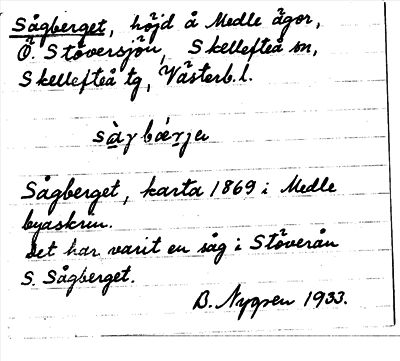 Sågberget, höjd å Medle ägor,
Ö. Stöversjön, Skellefteå sn,
Skellefteå tg, Västerb. l.
Sågberget, karta 1869 i Medle
byaskrin.
Det har varit en såg i Stöverån
S. Sågberget.
B. Nygren 1933.